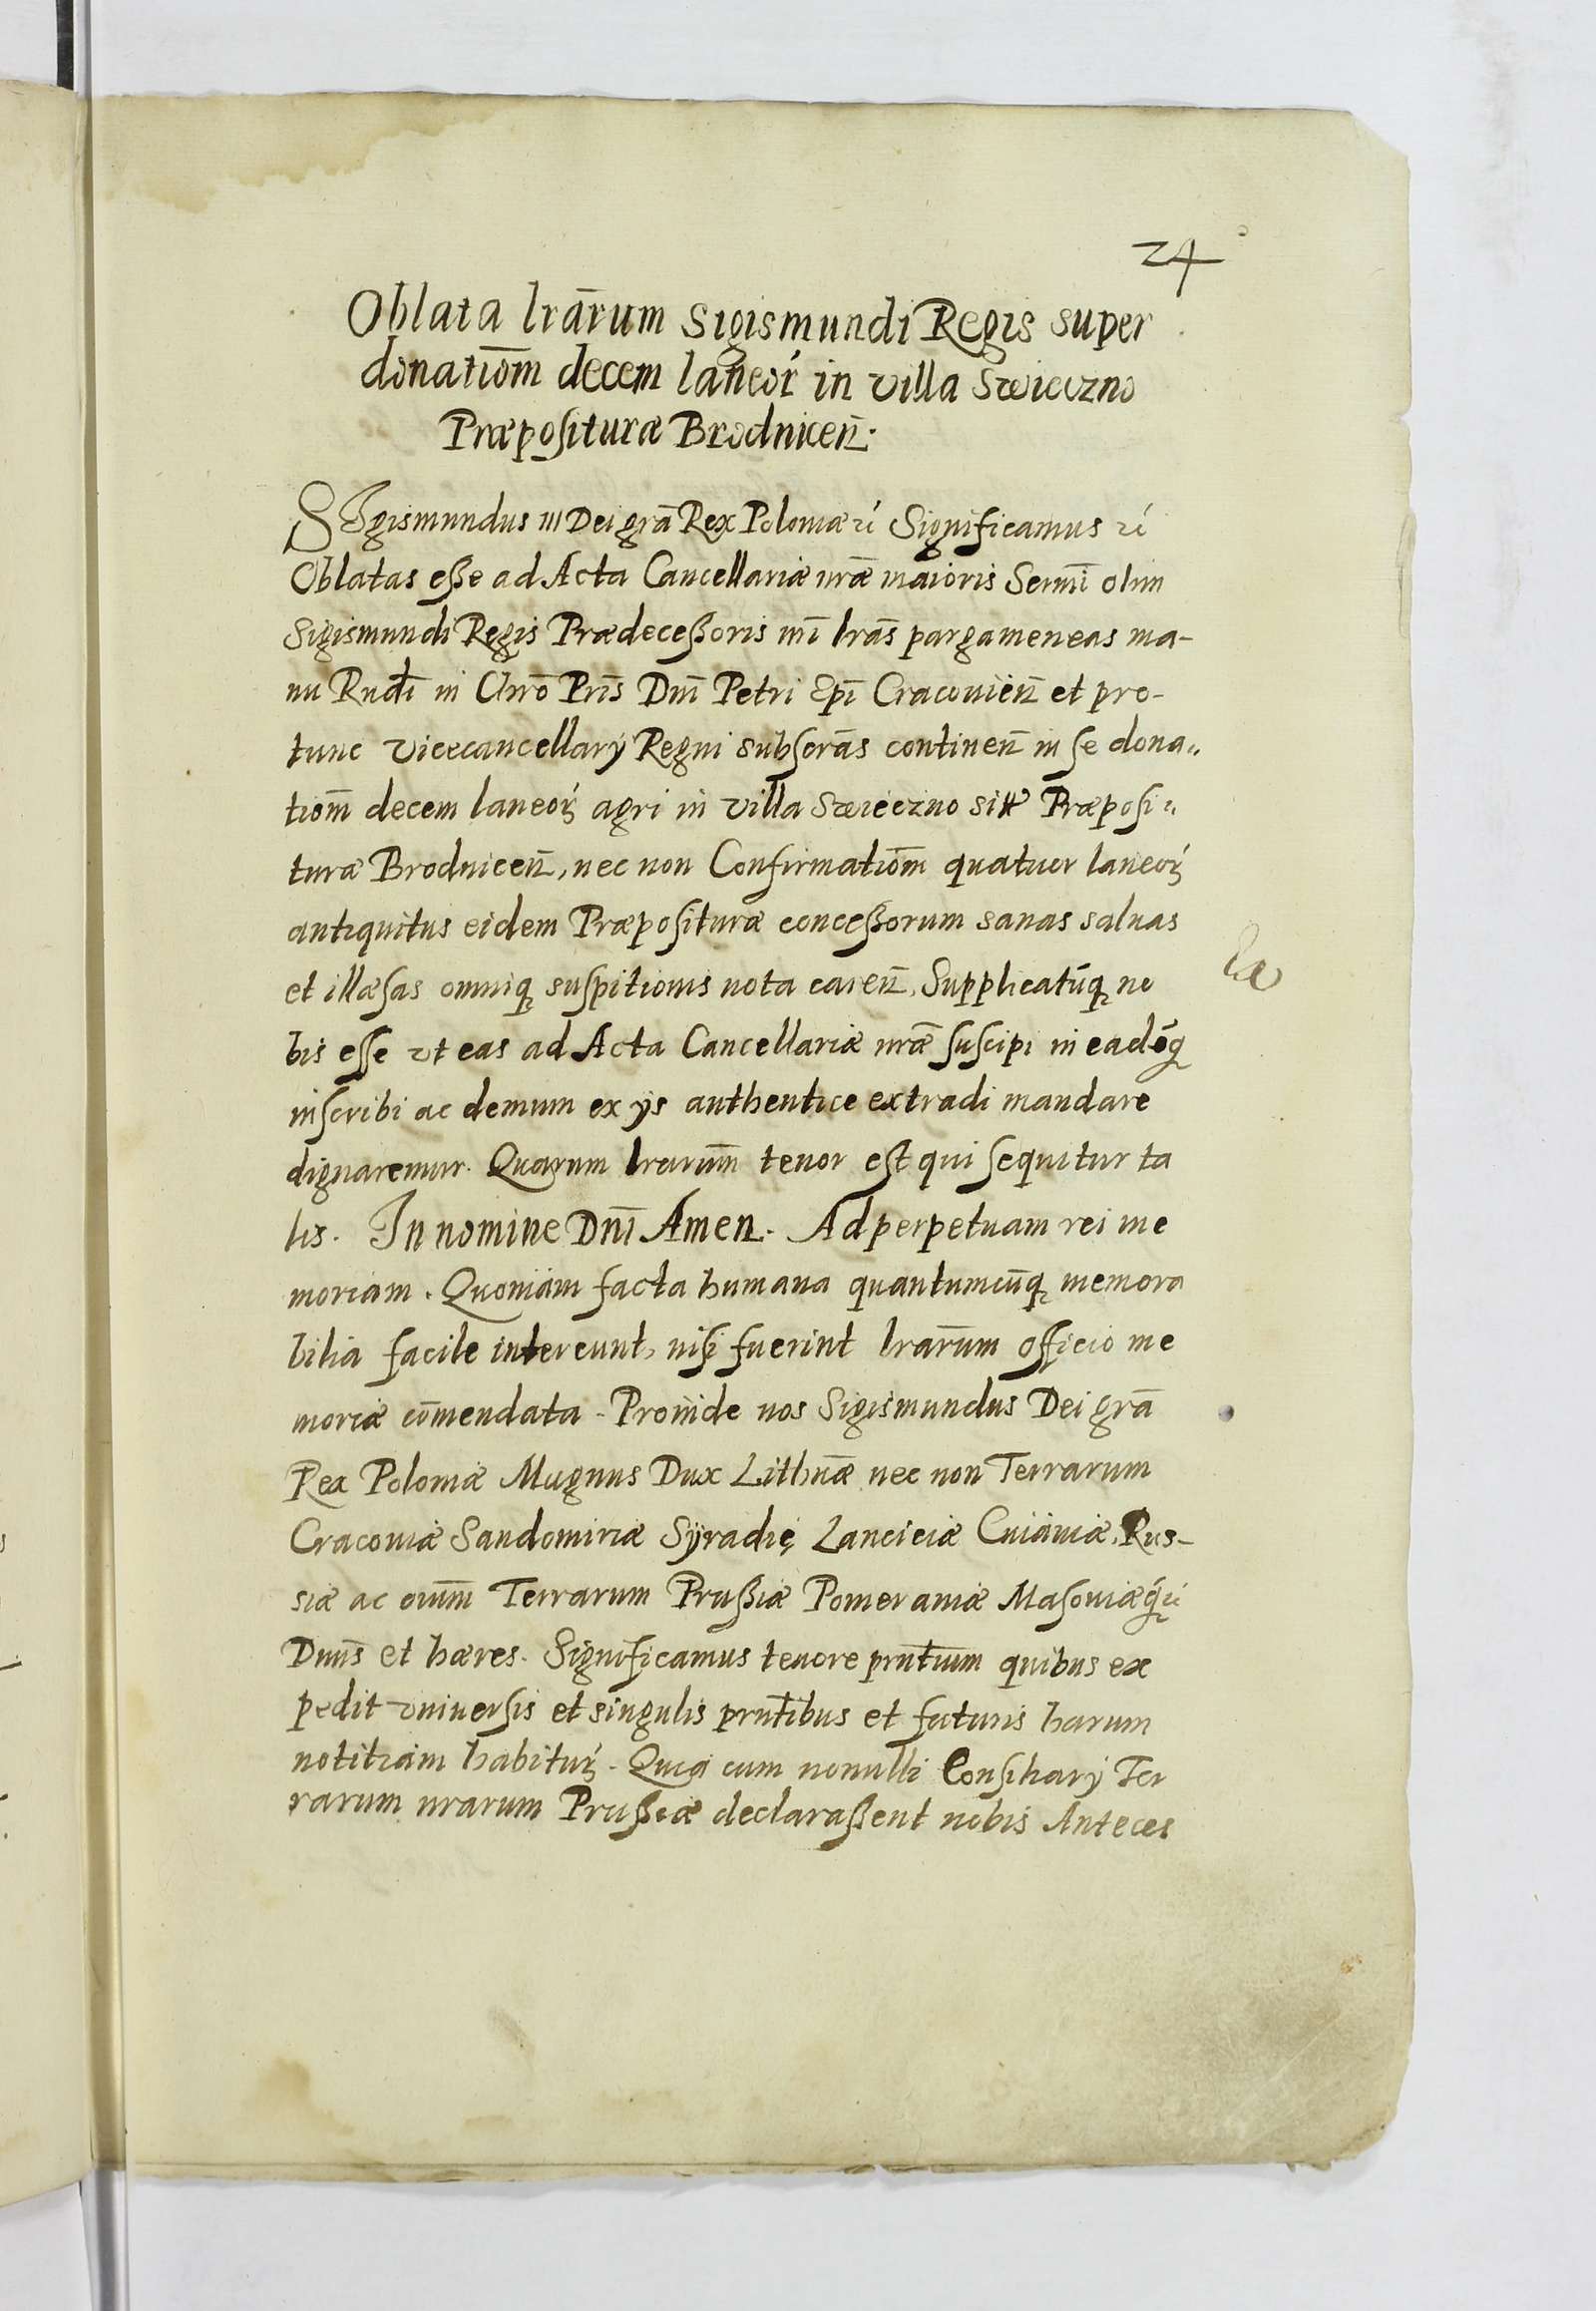 24
Oblata lrārum Sigismundi Regis super
donatiōm decem laneoŕ in villa Swieczno
Præposituræ Brodniceñ.
SIgismundus III Dei grā Rex Poloniæ rć Significamus rć
Oblatas eße ad Acta Cancellariæ nrǣ maioris Sermī olim
Sigismundi Regis Prædeceßoris nrī lrās pargameneas ma-
nu Rndī in Chrō Prīs Dnī Petri Epī Cracovień et pro-
tunc Vicecancellarÿ Regni subscrās contineñ in se dona-
tiōm decem laneoꝝ agri in villa Swieczno Præposi-
turæ Brodniceñ, nec non Confirmatiōm quatuor laneoꝝ
antiquitus eidem Præposituræ conceßorum sanas saluas
et illæsas omniq̨ suspitionis nota careñ, Supplicatūq̨ no
bis esse vt eas ad Acta Cancellariæ nrǣ suscipi in eadēq̨
inscribi ac demum ex ÿs authentice extradi mandare
dignaremur. Quarum lrarūm tenor est qui sequitur ta
lis. In nomine Dnī Amen. Ad perpetuam rei me
moriam. Quoniam facta humana quantumcūq̨ memora
bilia facile intereunt, nisi fuerint lrārum officio me
moriæ cōmendata. Proinde nos Sigismundus Dei grā
Rex Poloniæ Magnus Dux Lithnǣ nec non Terrarum
Cracoviæ Sandomiriæ Sÿradię Lanciciæ Cuiaviæ, Rus-
siæ ac oniūm Terrarum Prußiæ Pomeraniæ Masouiæq́ rć
Dnūs et hæres. Significamus tenore prntīum quibus ex
pedit vniuersis et singulis prntībus et futuris harum
notitiam habituꝝ. Quia cum nonulli Consiliarÿ Ter
rarum nrarum Prußiæ declaraßent nobis Anteces